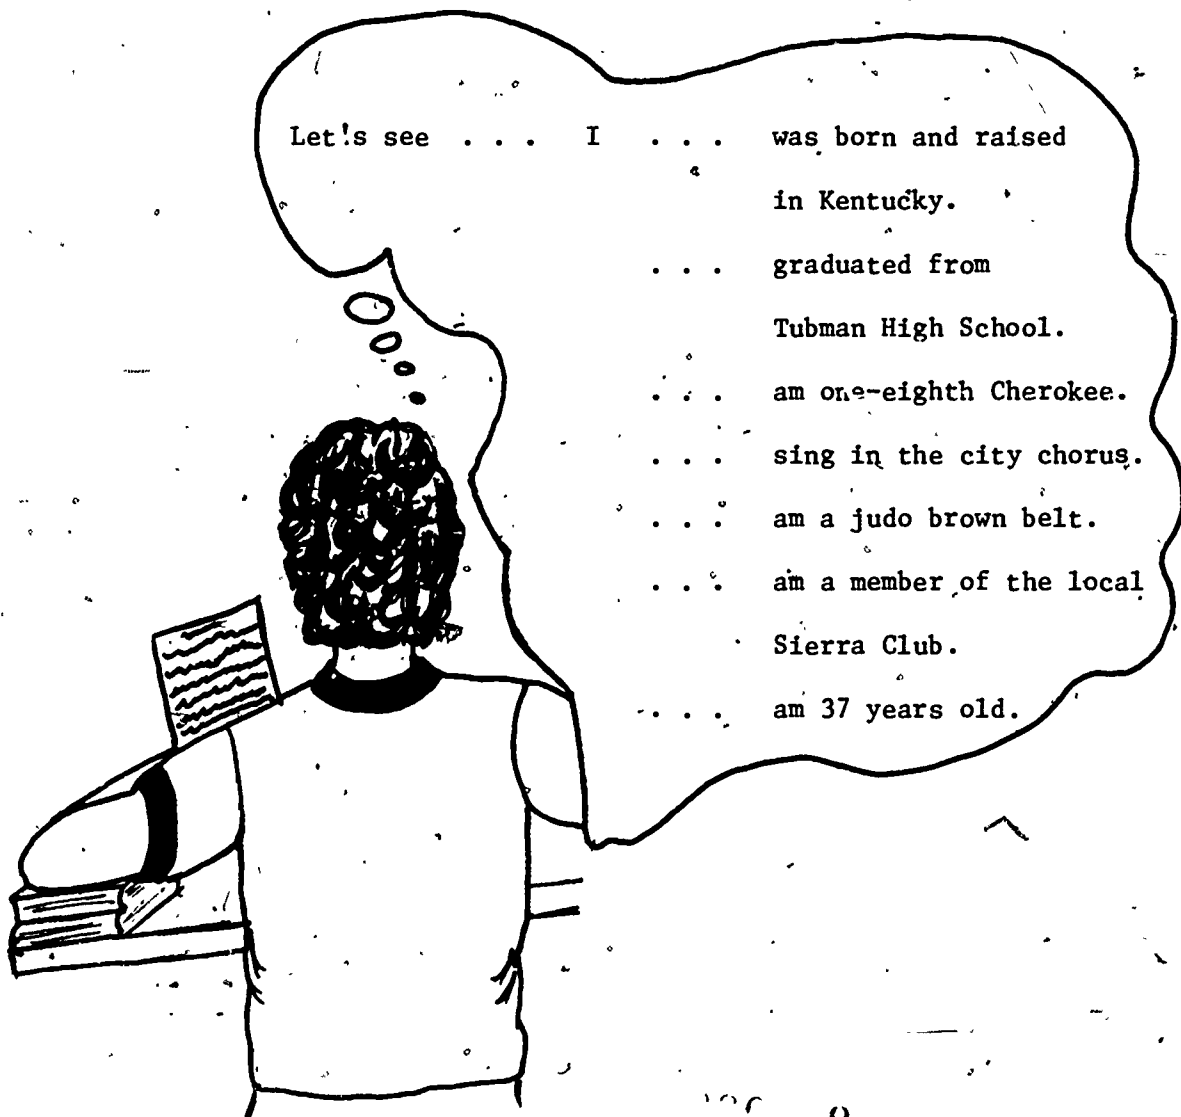 Let's see ... I ... was born and raised
in Kentucky.
... graduated from
Tubman High School.
... am one-eighth Cherokee.
... sing in the city chorus.
... am a judo brown belt.
... am a member of the local
Sierra Club.
... am 37 years old.